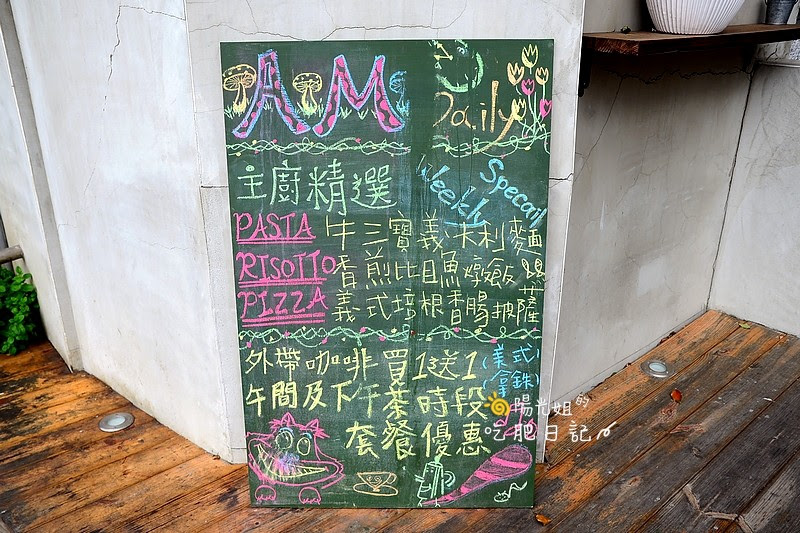 AM Daily
主廚精選 Weekly Specail
PASTA 牛三寶義木利麵
RISOTTO 香煎比目魚燉飯
PIZZA 義式培根香腸披薩
外帶咖啡買1送1 (美式)
(拿鐵)
午間及下午茶時段
套餐優惠
陽光姐的
吃肥日記